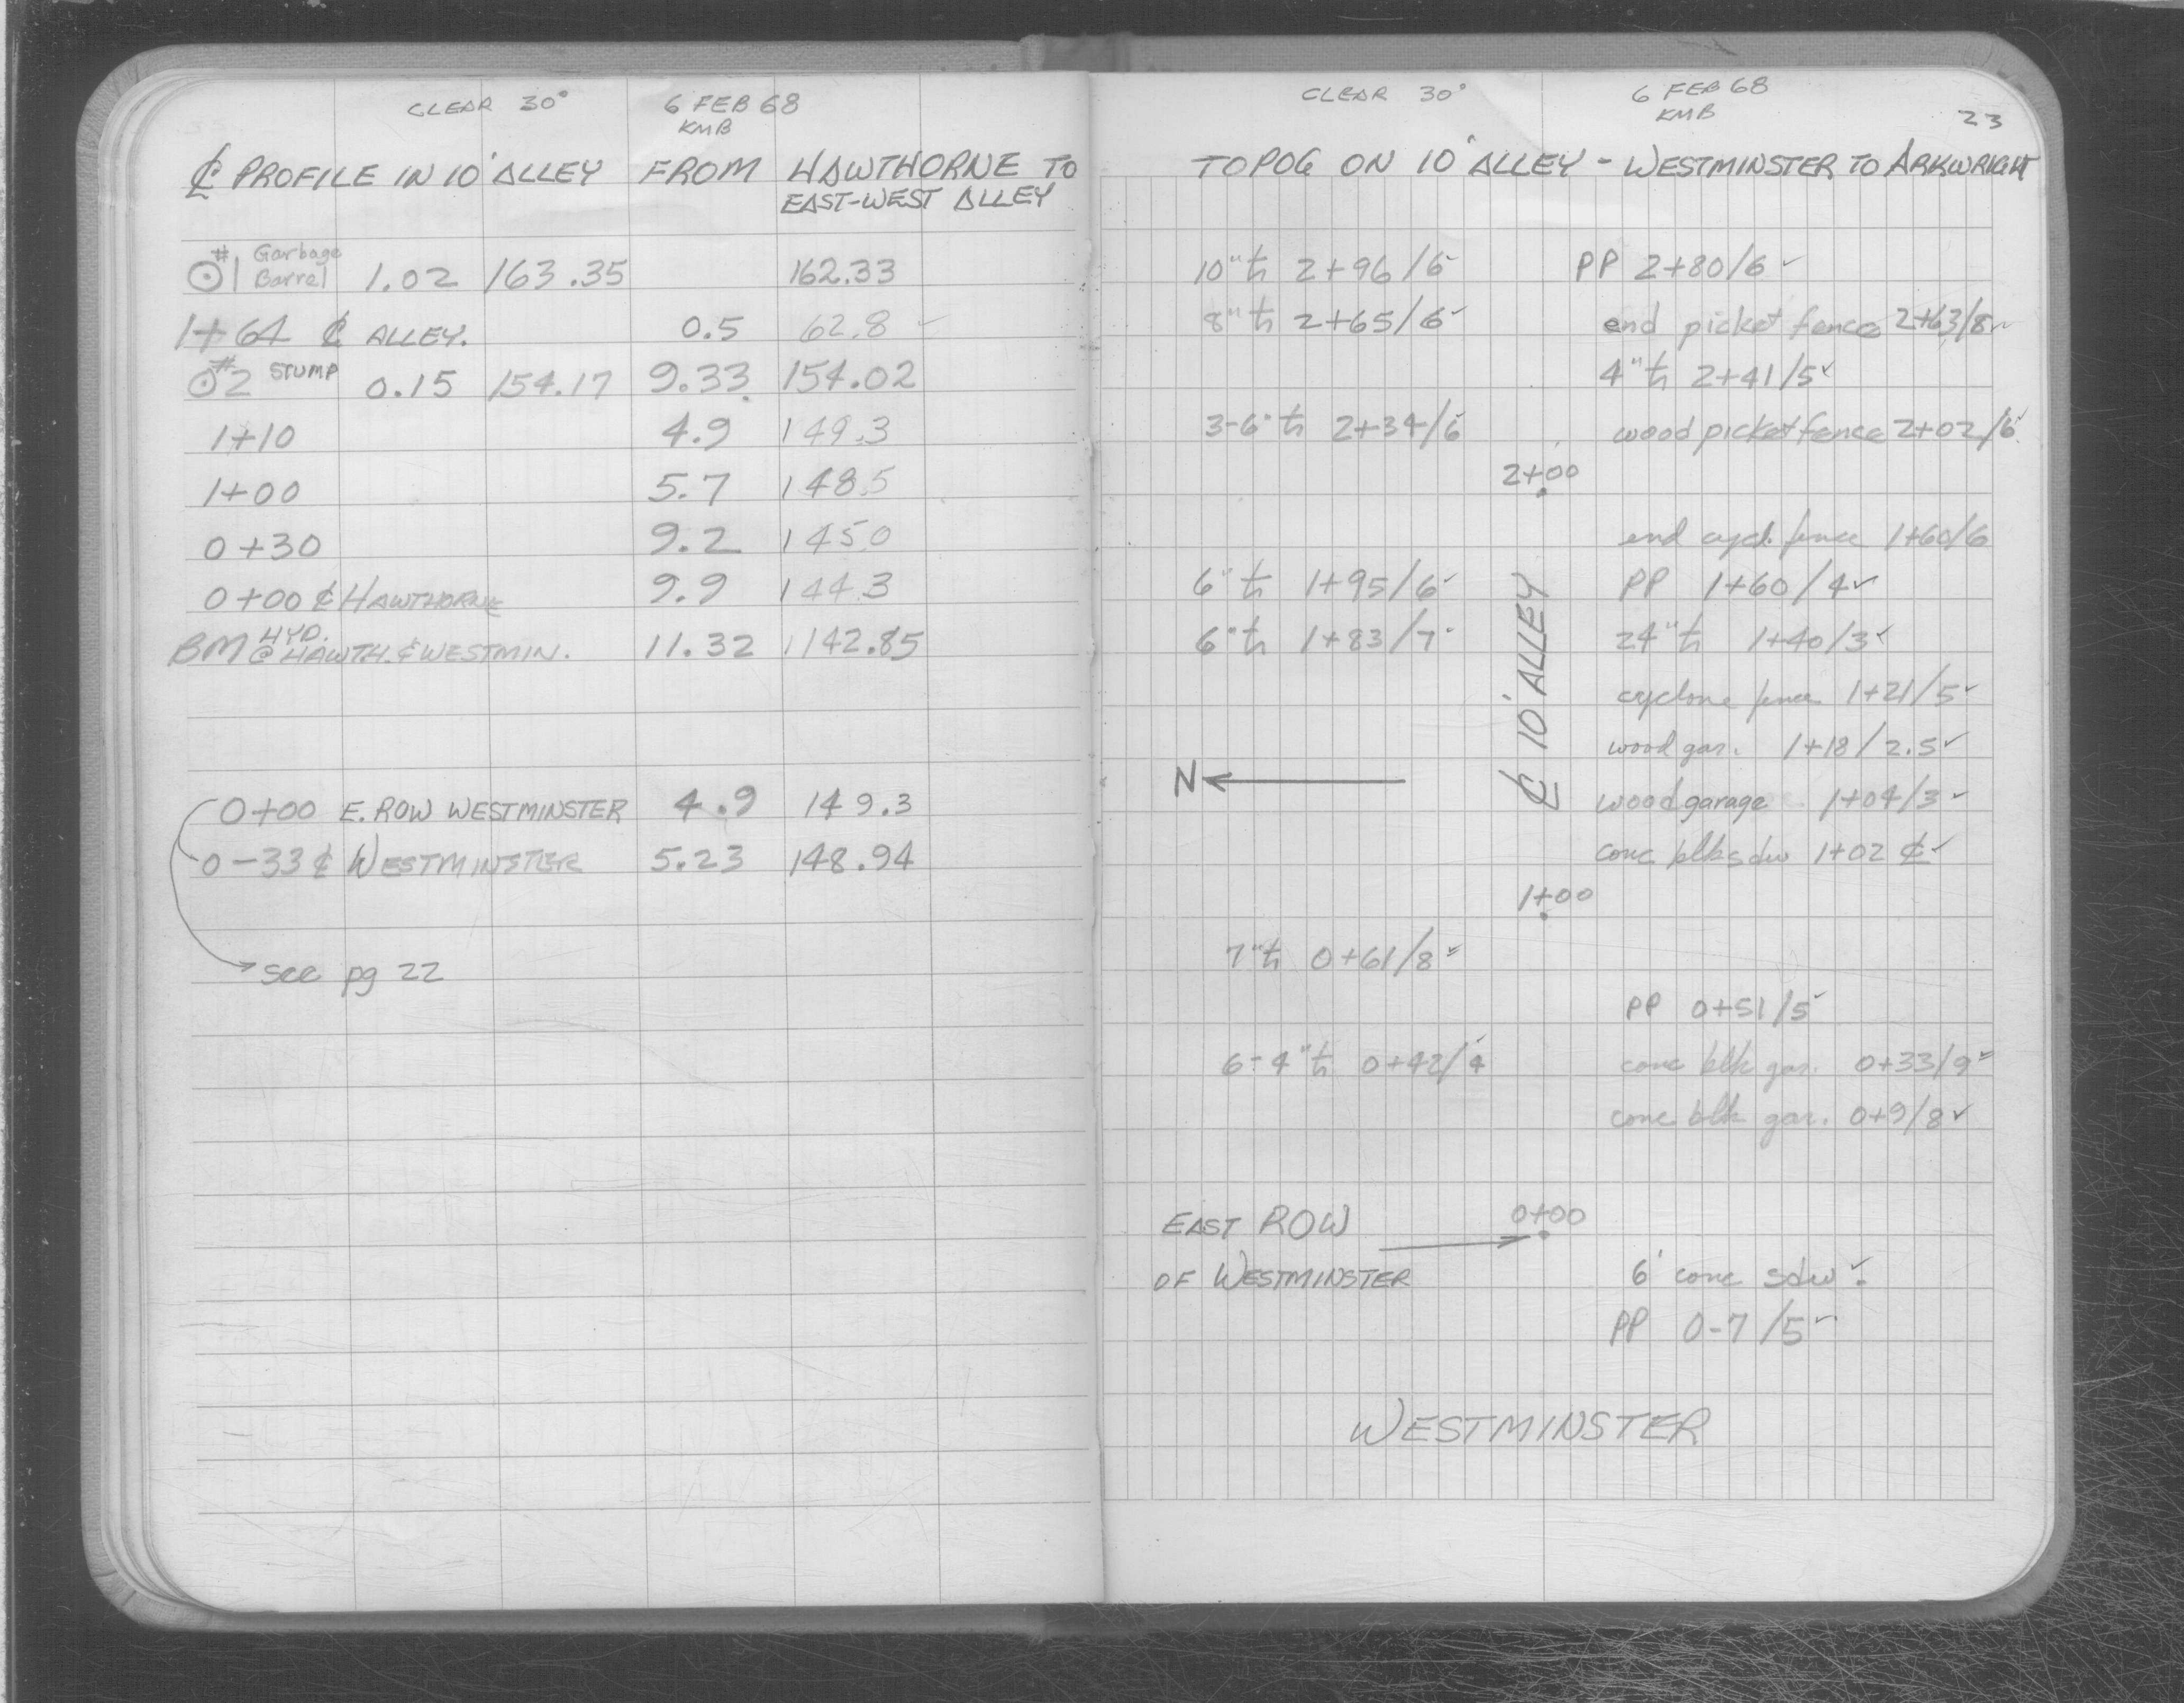 CLEAR 30° 6 FEB 68
KMB
℄ PROFILE IN 10' ALLEY FROM HAWTHORNE TO
EAST-WEST ALLEY
⊙ #1 Garbage Barrel 1.02 163.35 162.33
1+64 ℄ ALLEY. 0.5 62.8 ✓
⊙ #2 STUMP 0.15 154.17 9.33 154.02
1+10 4.9 149.3
1+00 5.7 148.5
0+30 9.2 145.0
0+00 ℄ HAWTHORNE 9.9 144.3
BM HYD. @ HAWTH. & WESTMIN. 11.32 142.85
0+00 E. ROW WESTMINSTER 4.9 149.3
0-33 ℄ WESTMINSTER 5.23 148.94
see pg 22
CLEAR 30° 6 FEB 68
KMB
23
TOPOG ON 10' ALLEY - WESTMINSTER TO ARKWRIGHT
10" tr 2+96/6 ✓ PP 2+80/6 ✓
8" tr 2+65/6 ✓ end picket fence 2+63/8 ✓
4" tr 2+41/5 ✓
3-6" tr 2+34/6 ✓ wood picket fence 2+02/6 ✓
2+00
end cycl. fence 1+60/6
6" tr 1+95/6 ✓ PP 1+60/4 ✓
6" tr 1+83/7 ✓ 24" tr 1+40/3 ✓
cyclone fence 1+21/5 ✓
wood gar. 1+18/2.5 ✓
℄ 10' ALLEY
N
wood garage 1+04/3 ✓
conc blk sdw 1+02 ℄ ✓
1+00
7" tr 0+61/8 ✓
PP 0+51/5 ✓
6-4" tr 0+42/4 ✓ conc blk gar. 0+33/9 ✓
conc blk gar. 0+9/8 ✓
EAST ROW 0+00
OF WESTMINSTER 6' conc sdw ✓
PP 0-7/5 ✓
WESTMINSTER